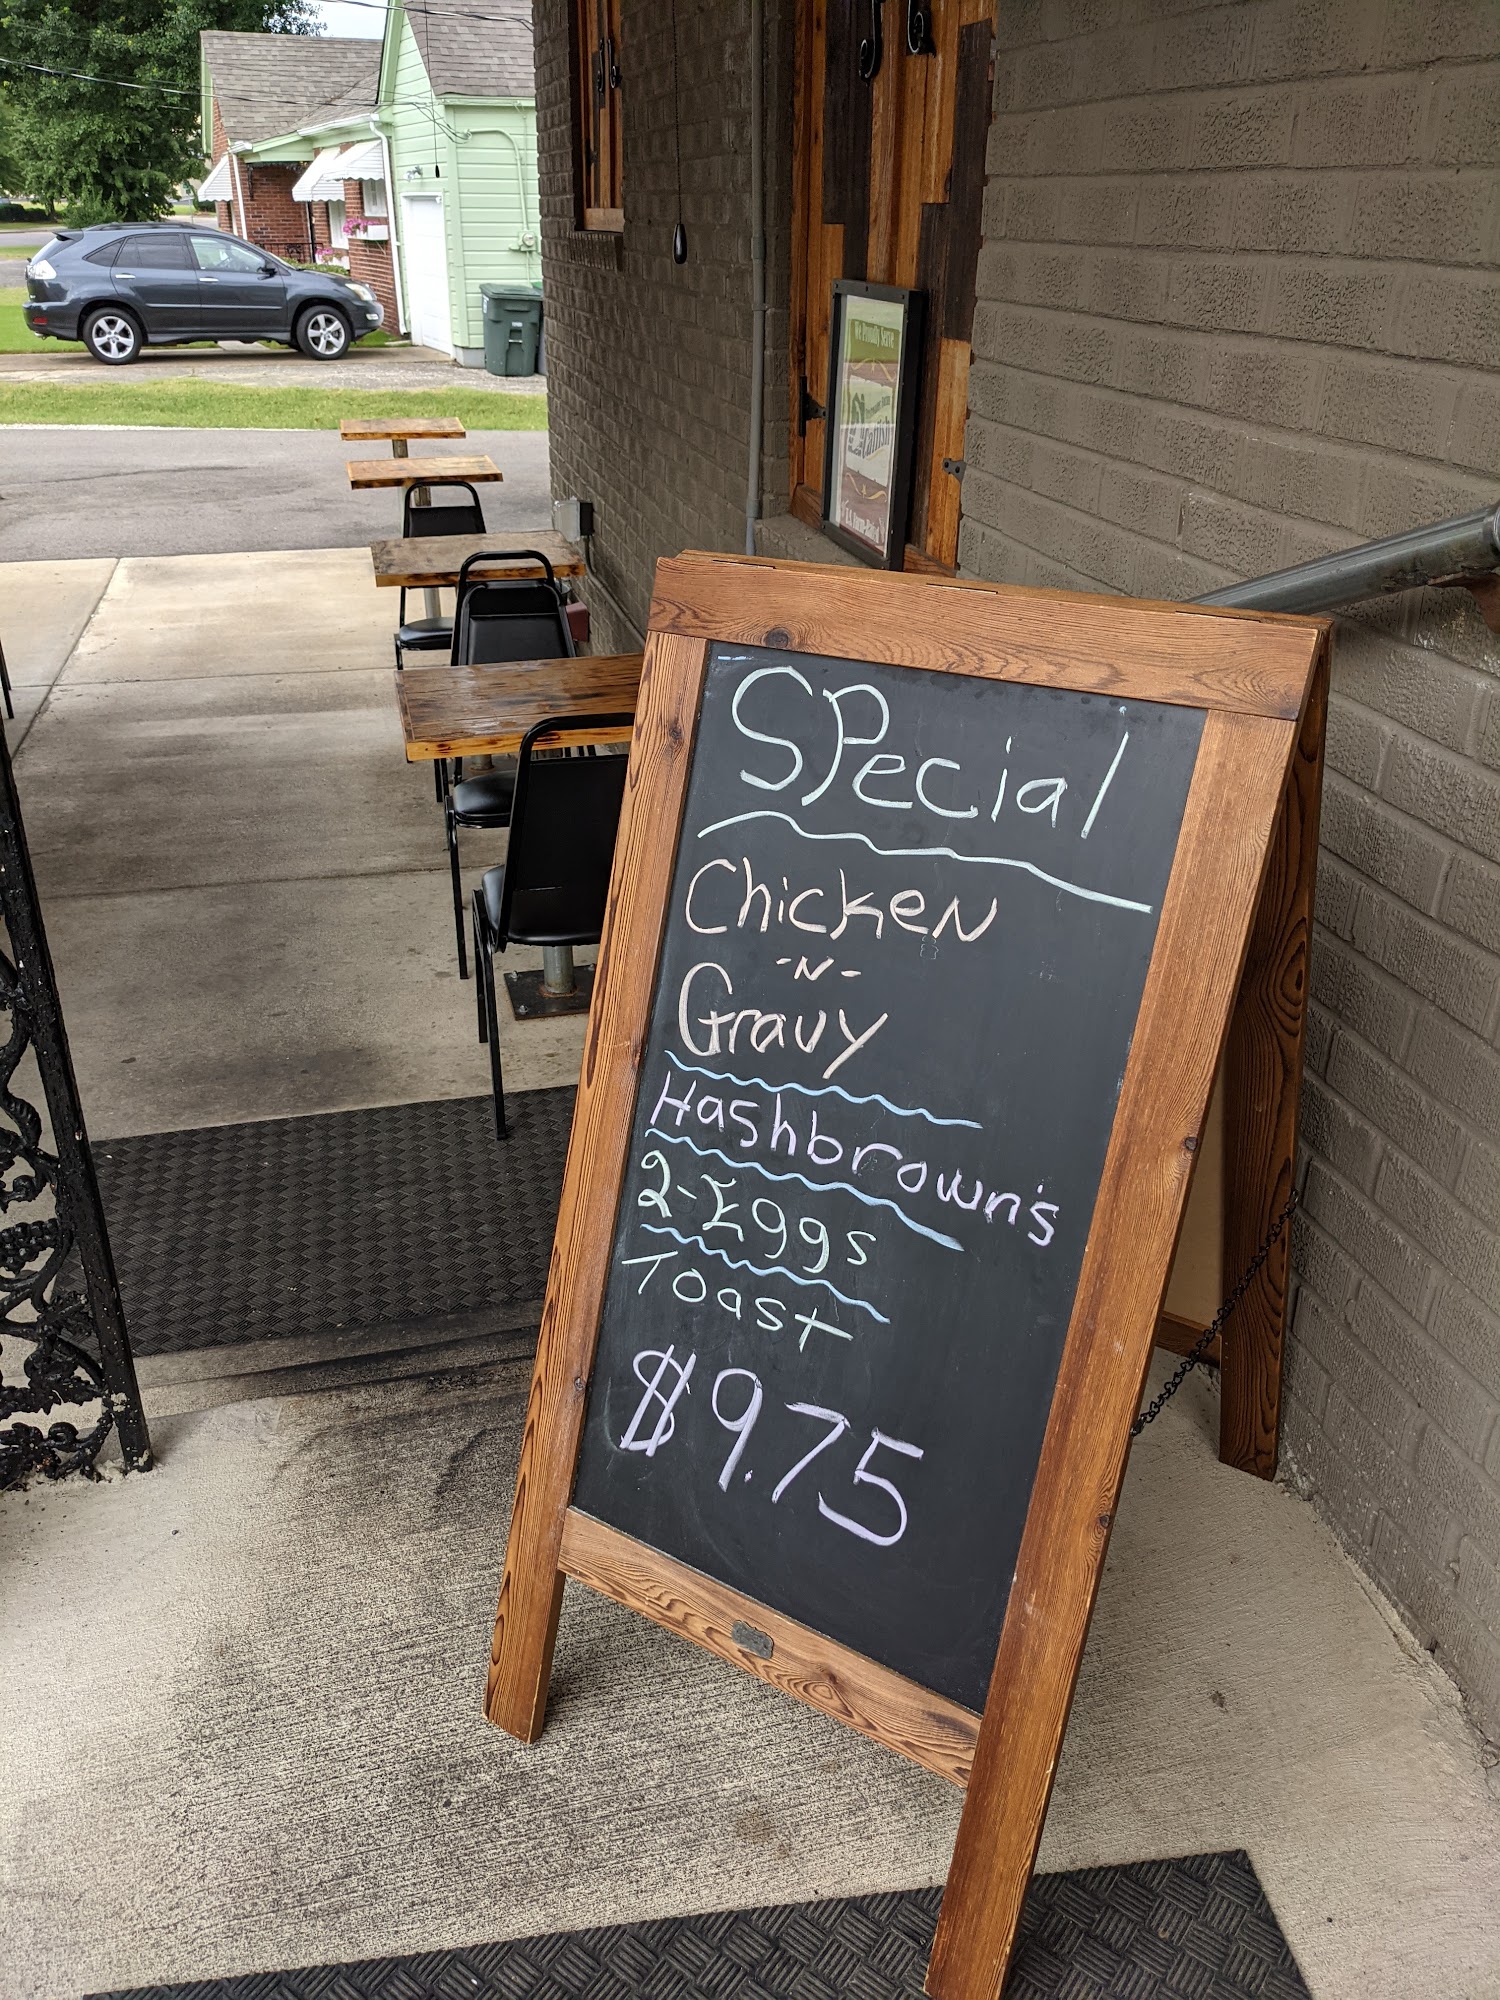 We Proudly Serve
SPecial
Chicken
-N-
Gravy
Hashbrown's
2-Eggs
Toast
$9.75